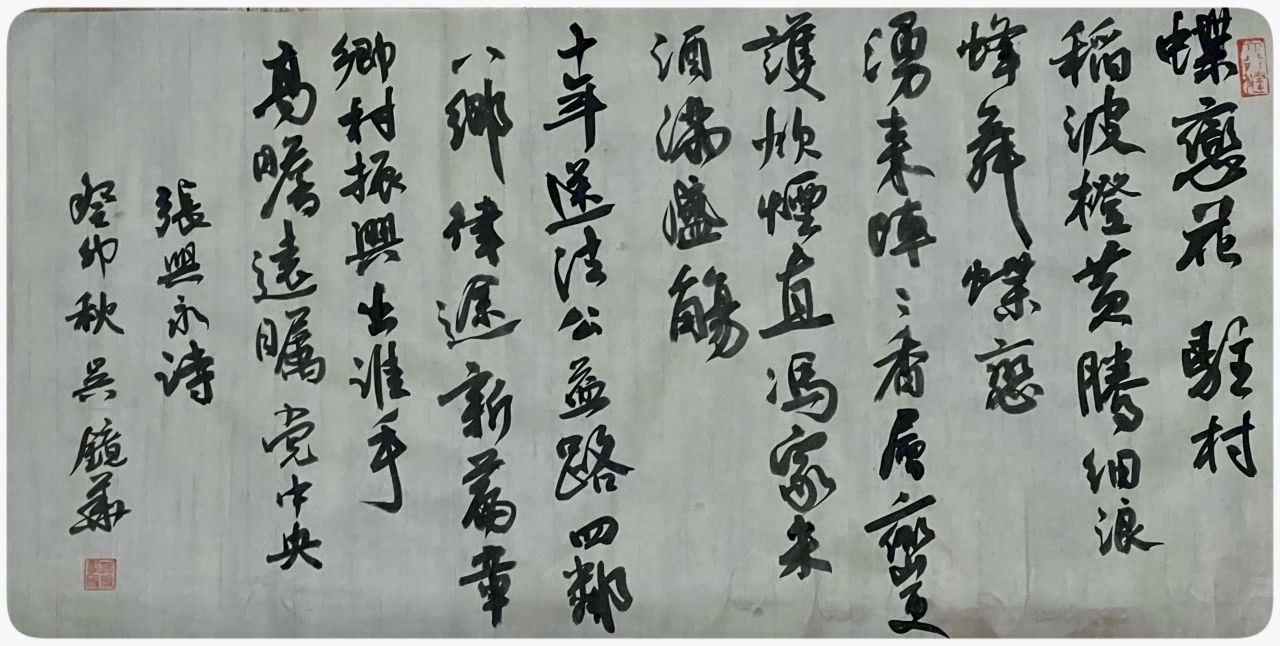 蝶戀花 駐村
稻波橙黄騰細浪
蜂舞蝶戀
湧来陣々香層巒更
護炊煙直馮家米
酒滿盛觴
十年送法公益路四鄰
八鄉律遞新篇章
鄉村振興出誰手
高瞻遠矚党中央
張興永詩
癸卯秋吳鏡華